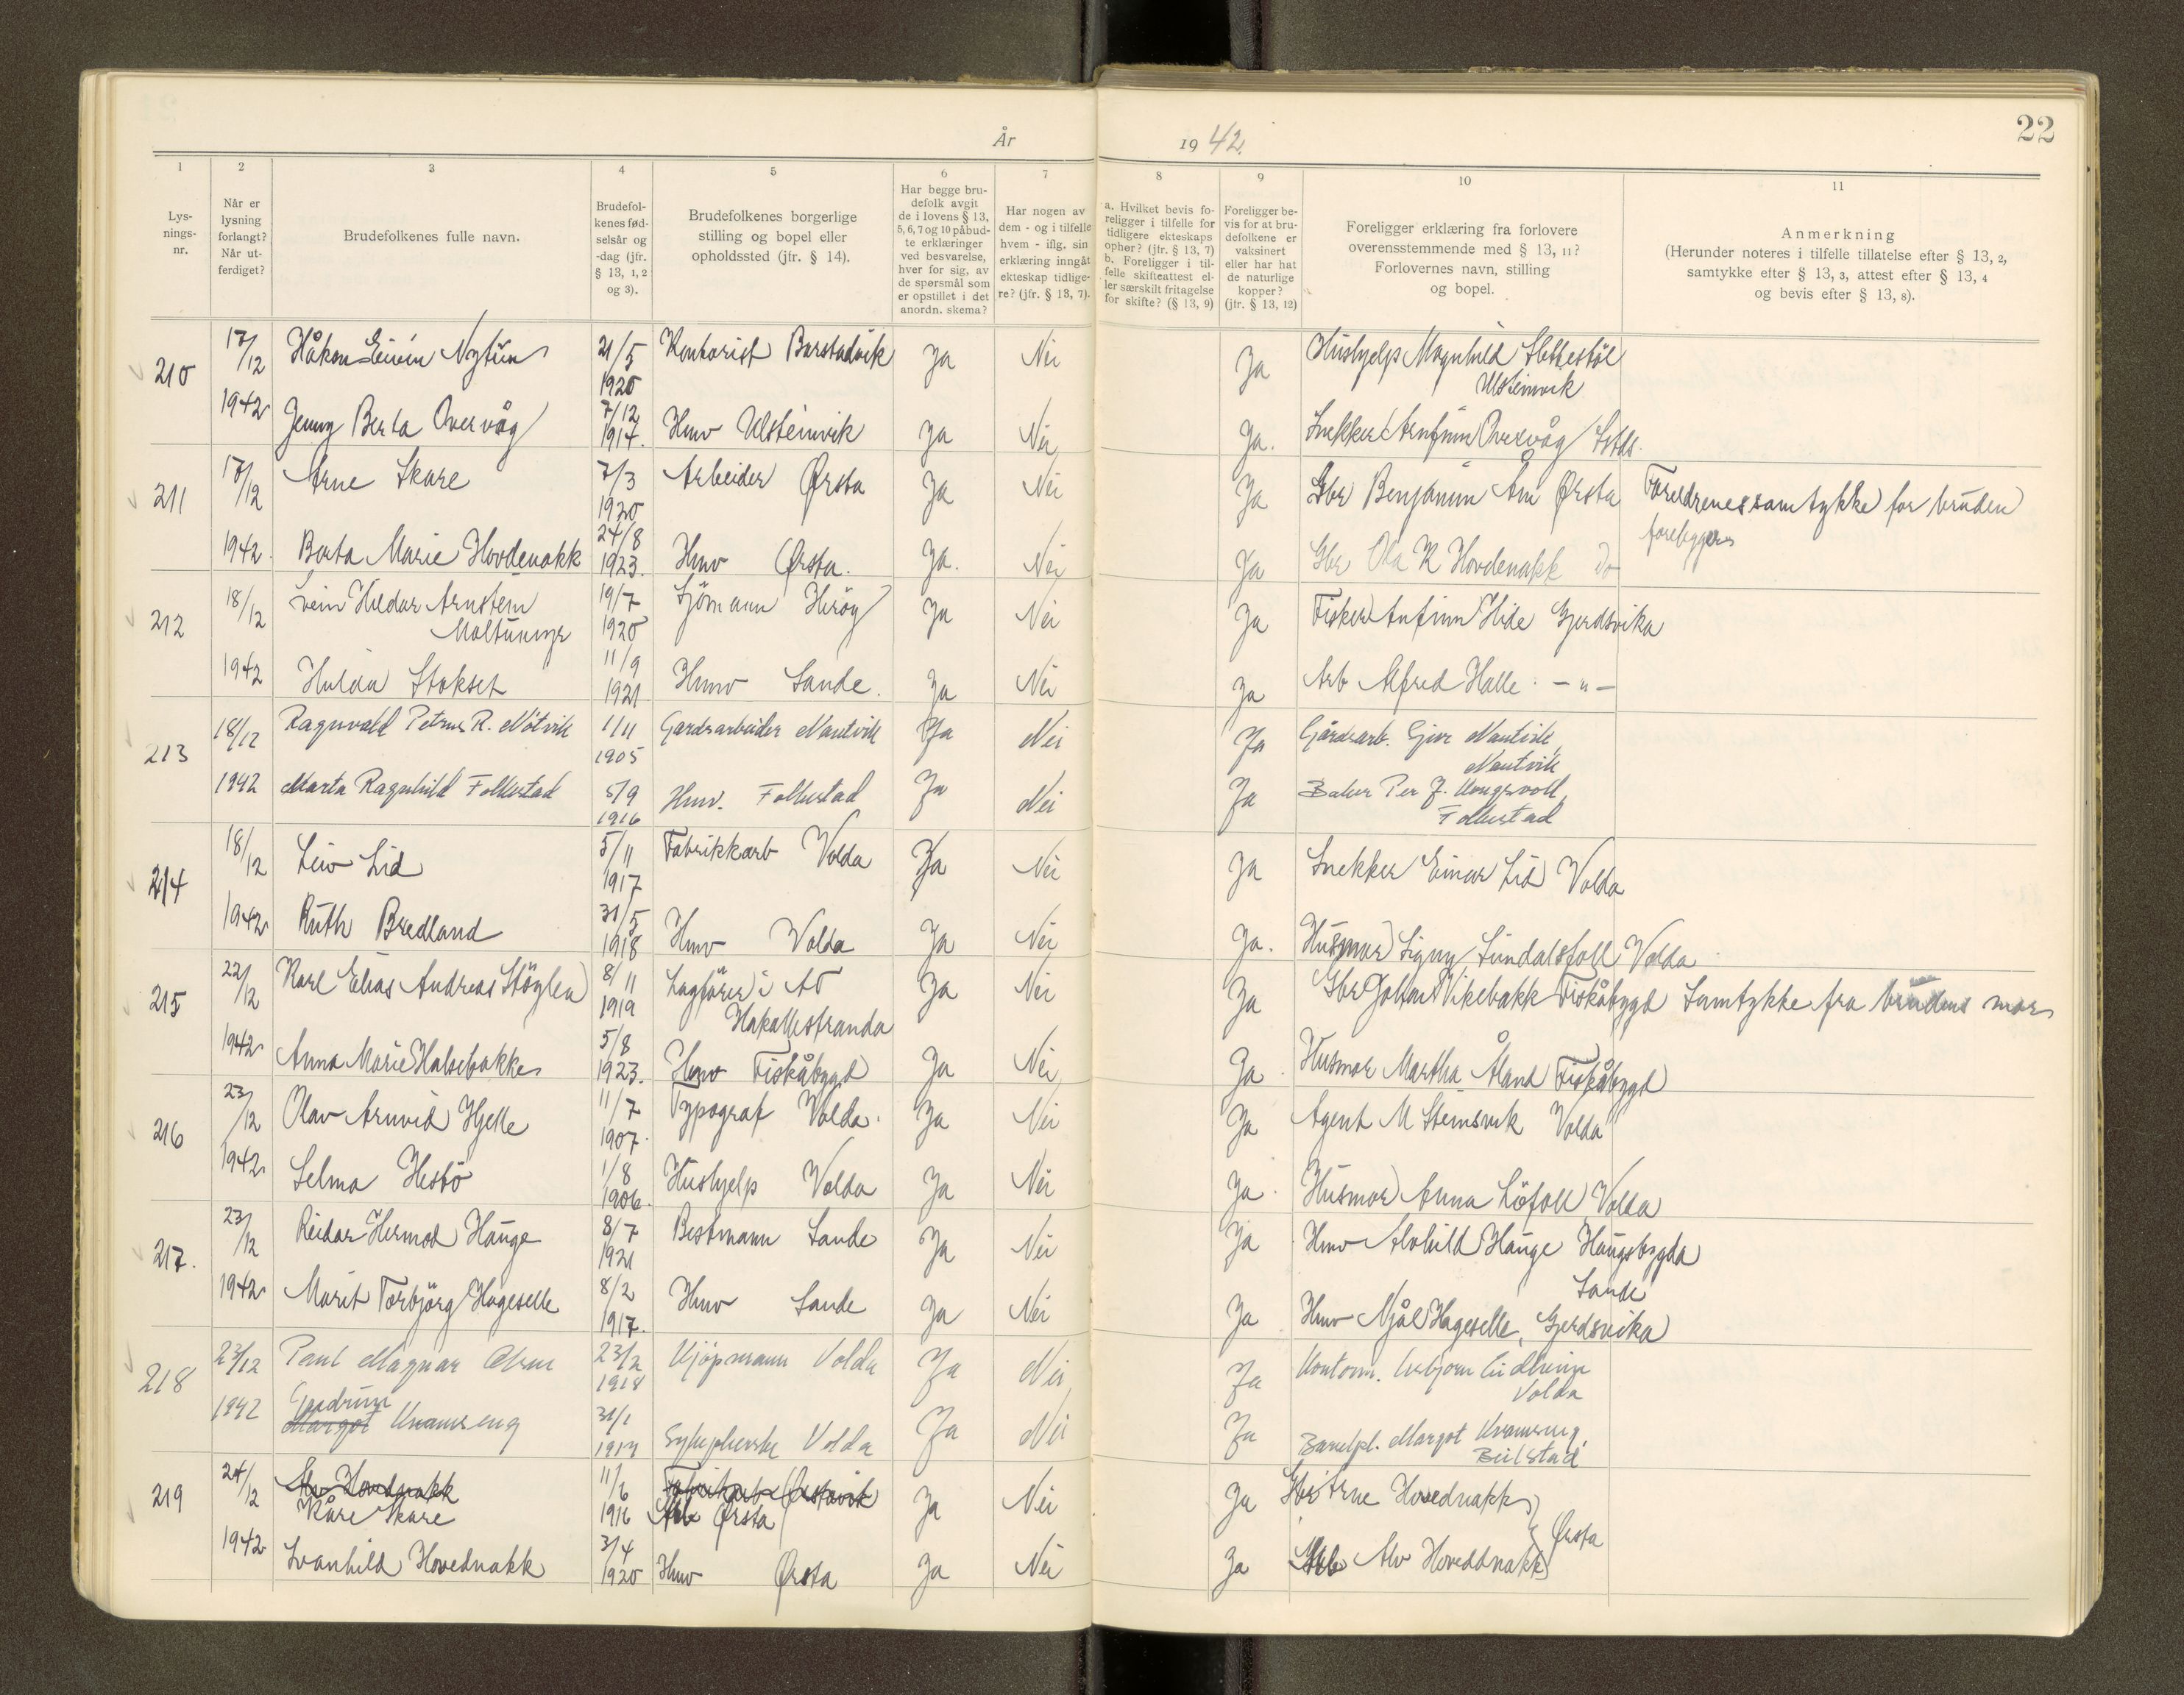 År 1942.
22
1
2
3
4
5
6
7
8
9
10
11
Lys-
nings-
nr.
Når er
lysning
forlangt?
Når ut-
ferdiget?
Brudefolkenes fulle navn.
Brudefol-
kenes fød-
selsår og
-dag (jfr.
§ 13, 1, 2
og 3).
Brudefolkenes borgerlige
stilling og bopel eller
opholdssted (jfr. § 14).
Har begge bru-
defolk avgit
de i lovens § 13,
5, 6, 7 og 10 påbud-
te erklæringer
ved besvarelse,
hver for sig, av
de spørsmål som
er opstillet i det
anordn. skema?
Har nogen av
dem - og i tilfelle
hvem - iflg. sin
erklæring inngått
ekteskap tidlige-
re? (jfr. § 13, 7).
a. Hvilket bevis fo-
religger i tilfelle for
tidligere ekteskaps
ophør? (jfr. § 13, 7)
b. Foreligger i til-
felle skifteattest el-
ler særskilt fritagelse
for skifte? (§ 13, 9)
Foreligger be-
vis for at bru-
defolkene er
vaksinert
eller har hat
de naturlige
kopper?
(jfr. § 13, 12)
Foreligger erklæring fra forlovere
overensstemmende med § 13, 11?
Forlovernes navn, stilling
og bopel.
Anmerkning
(Herunder noteres i tilfelle tillatelse efter § 13, 2,
samtykke efter § 13, 3, attest efter § 13, 4
og bevis efter § 13, 8).
210 17/12 Håkon Eivin Nytun 21/5 1920 Kontorist Barstadvik Ja Nei Ja Hushjelp Magnhild Slettestøl
Ulsteinvik
1942 Jenny Berta Overvåg 7/12 1914. Hmv Ulsteinvik Ja Nei Ja. Snekker Arnfinn Overvåg Sstds.
211 17/12 Arne Skare 7/3 1920 Arbeider Ørsta Ja Nei Ja Gbr Benjamin Åm Ørsta Foreldrenes samtykke for bruden
foreligger
1942. Berta Marie Hovdenakk 24/8 1923. Hmv Ørsta. Ja. Nei Ja Gbr Ola K Hovdenakk do
212 18/12 Svein Hildar Arnstein
Moltumyr 19/7 1920 Sjömann Herøy Ja Nei Ja Fisker Anfinn Hide Gjerdsvika
1942 Hulda Stokset 11/9 1921 Hmv Sande. Ja Nei Ja Arb Alfred Halle. - " -
213 18/12 Ragnvald Petrus R. Nötvik 1/11 1905 Gardsarbeider Nautvik Ja Nei Ja Gårdsarb. Giør Nautvik,
Nautvik
1942 Marta Ragnhild Folkestad 5/9 1916 Hmv. Folkestad Ja Nei Ja Baker Per J. Kongsvoll,
Folkestad
214 18/12 Leiv Lid 5/11 1917 Fabrikkarb Volda Ja Nei Ja Snekker Einar Lid Volda
1942 Ruth Bredland 31/5 1918 Hmv Volda Ja Nei Ja. Husmor Signy Sundalsfoll Volda
215 22/12 Karl Elias Andreas Stöylen 8/11 1919 Lagfører i AT
Hakallestranda Ja Nei Ja Gbr Vikebakk Fiskåbygd Samtykke fra brudens mor
1942 Anna Marie Halsebakke 5/8 1923. Hmv Fiskåbygd Ja Nei Ja. Husmor Martha Åland Fiskåbygd
216 23/12 Olav Arnvid Hjelle 11/7 1907. Typograf Volda. Ja Nei Ja Agent M Steinsvik Volda
1942 Selma Hestö 1/8 1906. Hushjelp Volda Ja Nei Ja. Husmor Anna Löfoll Volda
217. 23/12 Reidar Hermod Hauge 8/7 1921 Bestmann Sande Ja Nei Ja Hmv Alvhild Hauge Haugsbygda
Sande
1942 Marit Torbjörg Hageselle 8/2 1917. Hmv Sande Ja Nei Ja Hmv Njål Hageselle, Gjerdsvika
218 23/12 Paul Magnar Alme 23/2 1918 Kjöpmann Volda Ja Nei Ja Kontorm. Asbjørn Eidheim
Volda
1942 Gudrun
Margot Kvamseng 31/1 Sykepleierske Volda Ja Nei Ja Barnepl. Margot Kvamseng,
Beitstad
219 24/12 Alv Hovednakk
Kåre Skare 11/6 1916 Fabrikkarb Ørstavik
Arb Ørsta Ja Nei Ja Gbr Arne Hovednakk
Ørsta
1942 Svanhild Hovednakk 3/4 1920 Hmv Ørsta Ja Nei Ja Arb Alv Hoveddnakk